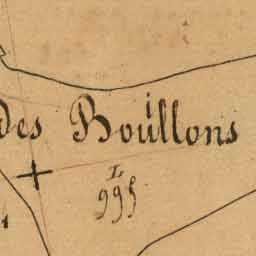 des Boullons
L
995